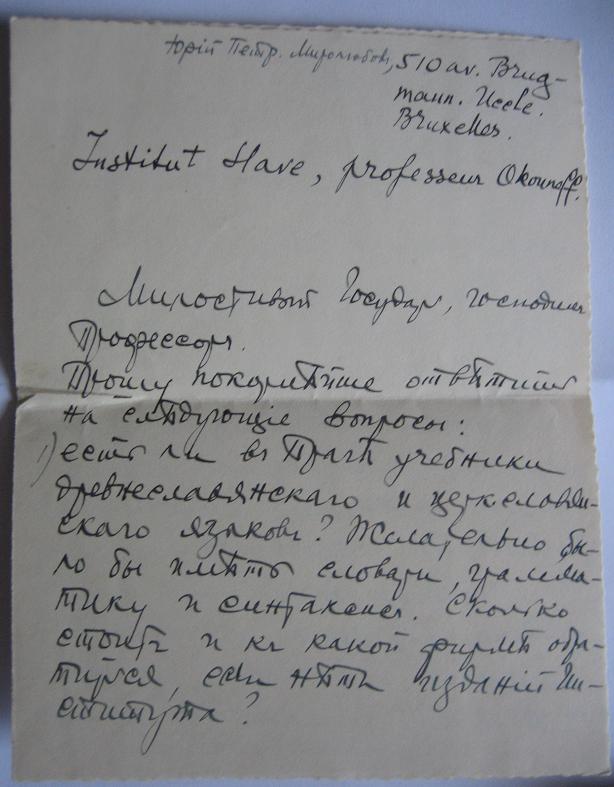 Юрій Петр. Миролюбовъ, 510 av. Brug-
mann. Uccle.
Bruxelles.
Institut Slave, professeur Okouneff.
Милостивый Государь, господинъ
Профессоръ.
Прошу покорнѣйше отвѣтить
на слѣдующіе вопросы:
1) есть ли въ Прагѣ учебники
древнеславянскаго и церкславян-
скаго языковъ? Желательно бы-
ло бы имѣть словари, грамма-
тику и синтаксисъ. Сколько
стоитъ и къ какой фирмѣ обра-
титься, если нѣтъ изданій Ин-
ститута?